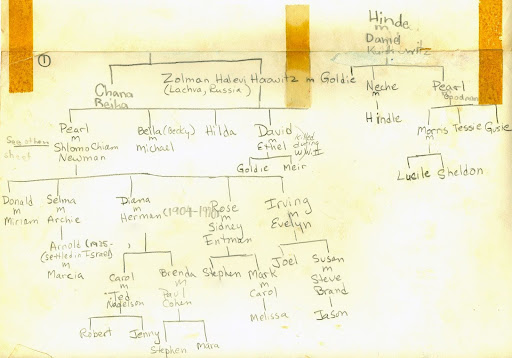 Hinde
m
David
①
Zolman Halevi Hoowitz m Goldie
(Lachva, Russia)
Chana
Beiha
Neche
m
Hindle
Pearl
Goodman
Pearl
m
Shlomo Chiam
Newman
Bella (Becky)
m
Michael
Hilda
David
m
Ethel
killed
during
W.W.II
See other
sheet
Goldie Meir
Morris Tessie Gusie
m
Lucile Sheldon
Donald
m
Miriam
Selma
m
Archie
Diana
m
Herman (1909-
Rose
m
Sidney
Entman
Irving
m
Evelyn
Arnold (1935-
(settled in Israel)
m
Marcia
Carol
m
Ted
Nagelson
Brenda
m
Paul
Cohen
Stephen Mark
m
Carol
Melissa
Joel Susan
m
Steve
Brand
Jason
Robert Jenny
Stephen Mara